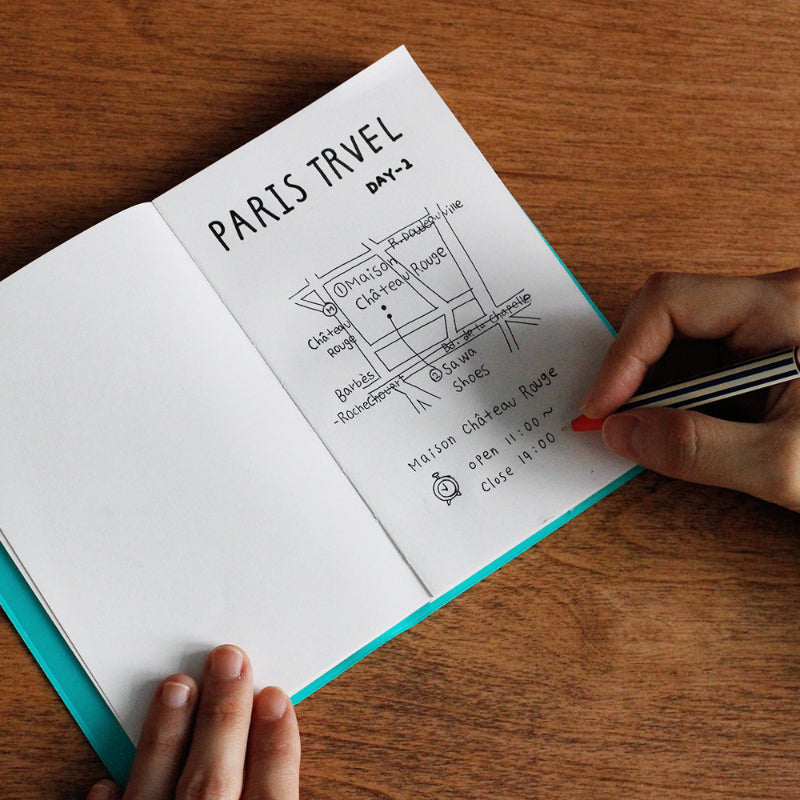 PARIS TRVEL
DAY-2
R. Doudeauville
①Maison
Château Rouge
M
Château
Rouge
Bd. de la Chapelle
②Sawa
Shoes
Barbès
-Rochechouart
Maison Château Rouge
open 11:00 ~
Close 19:00